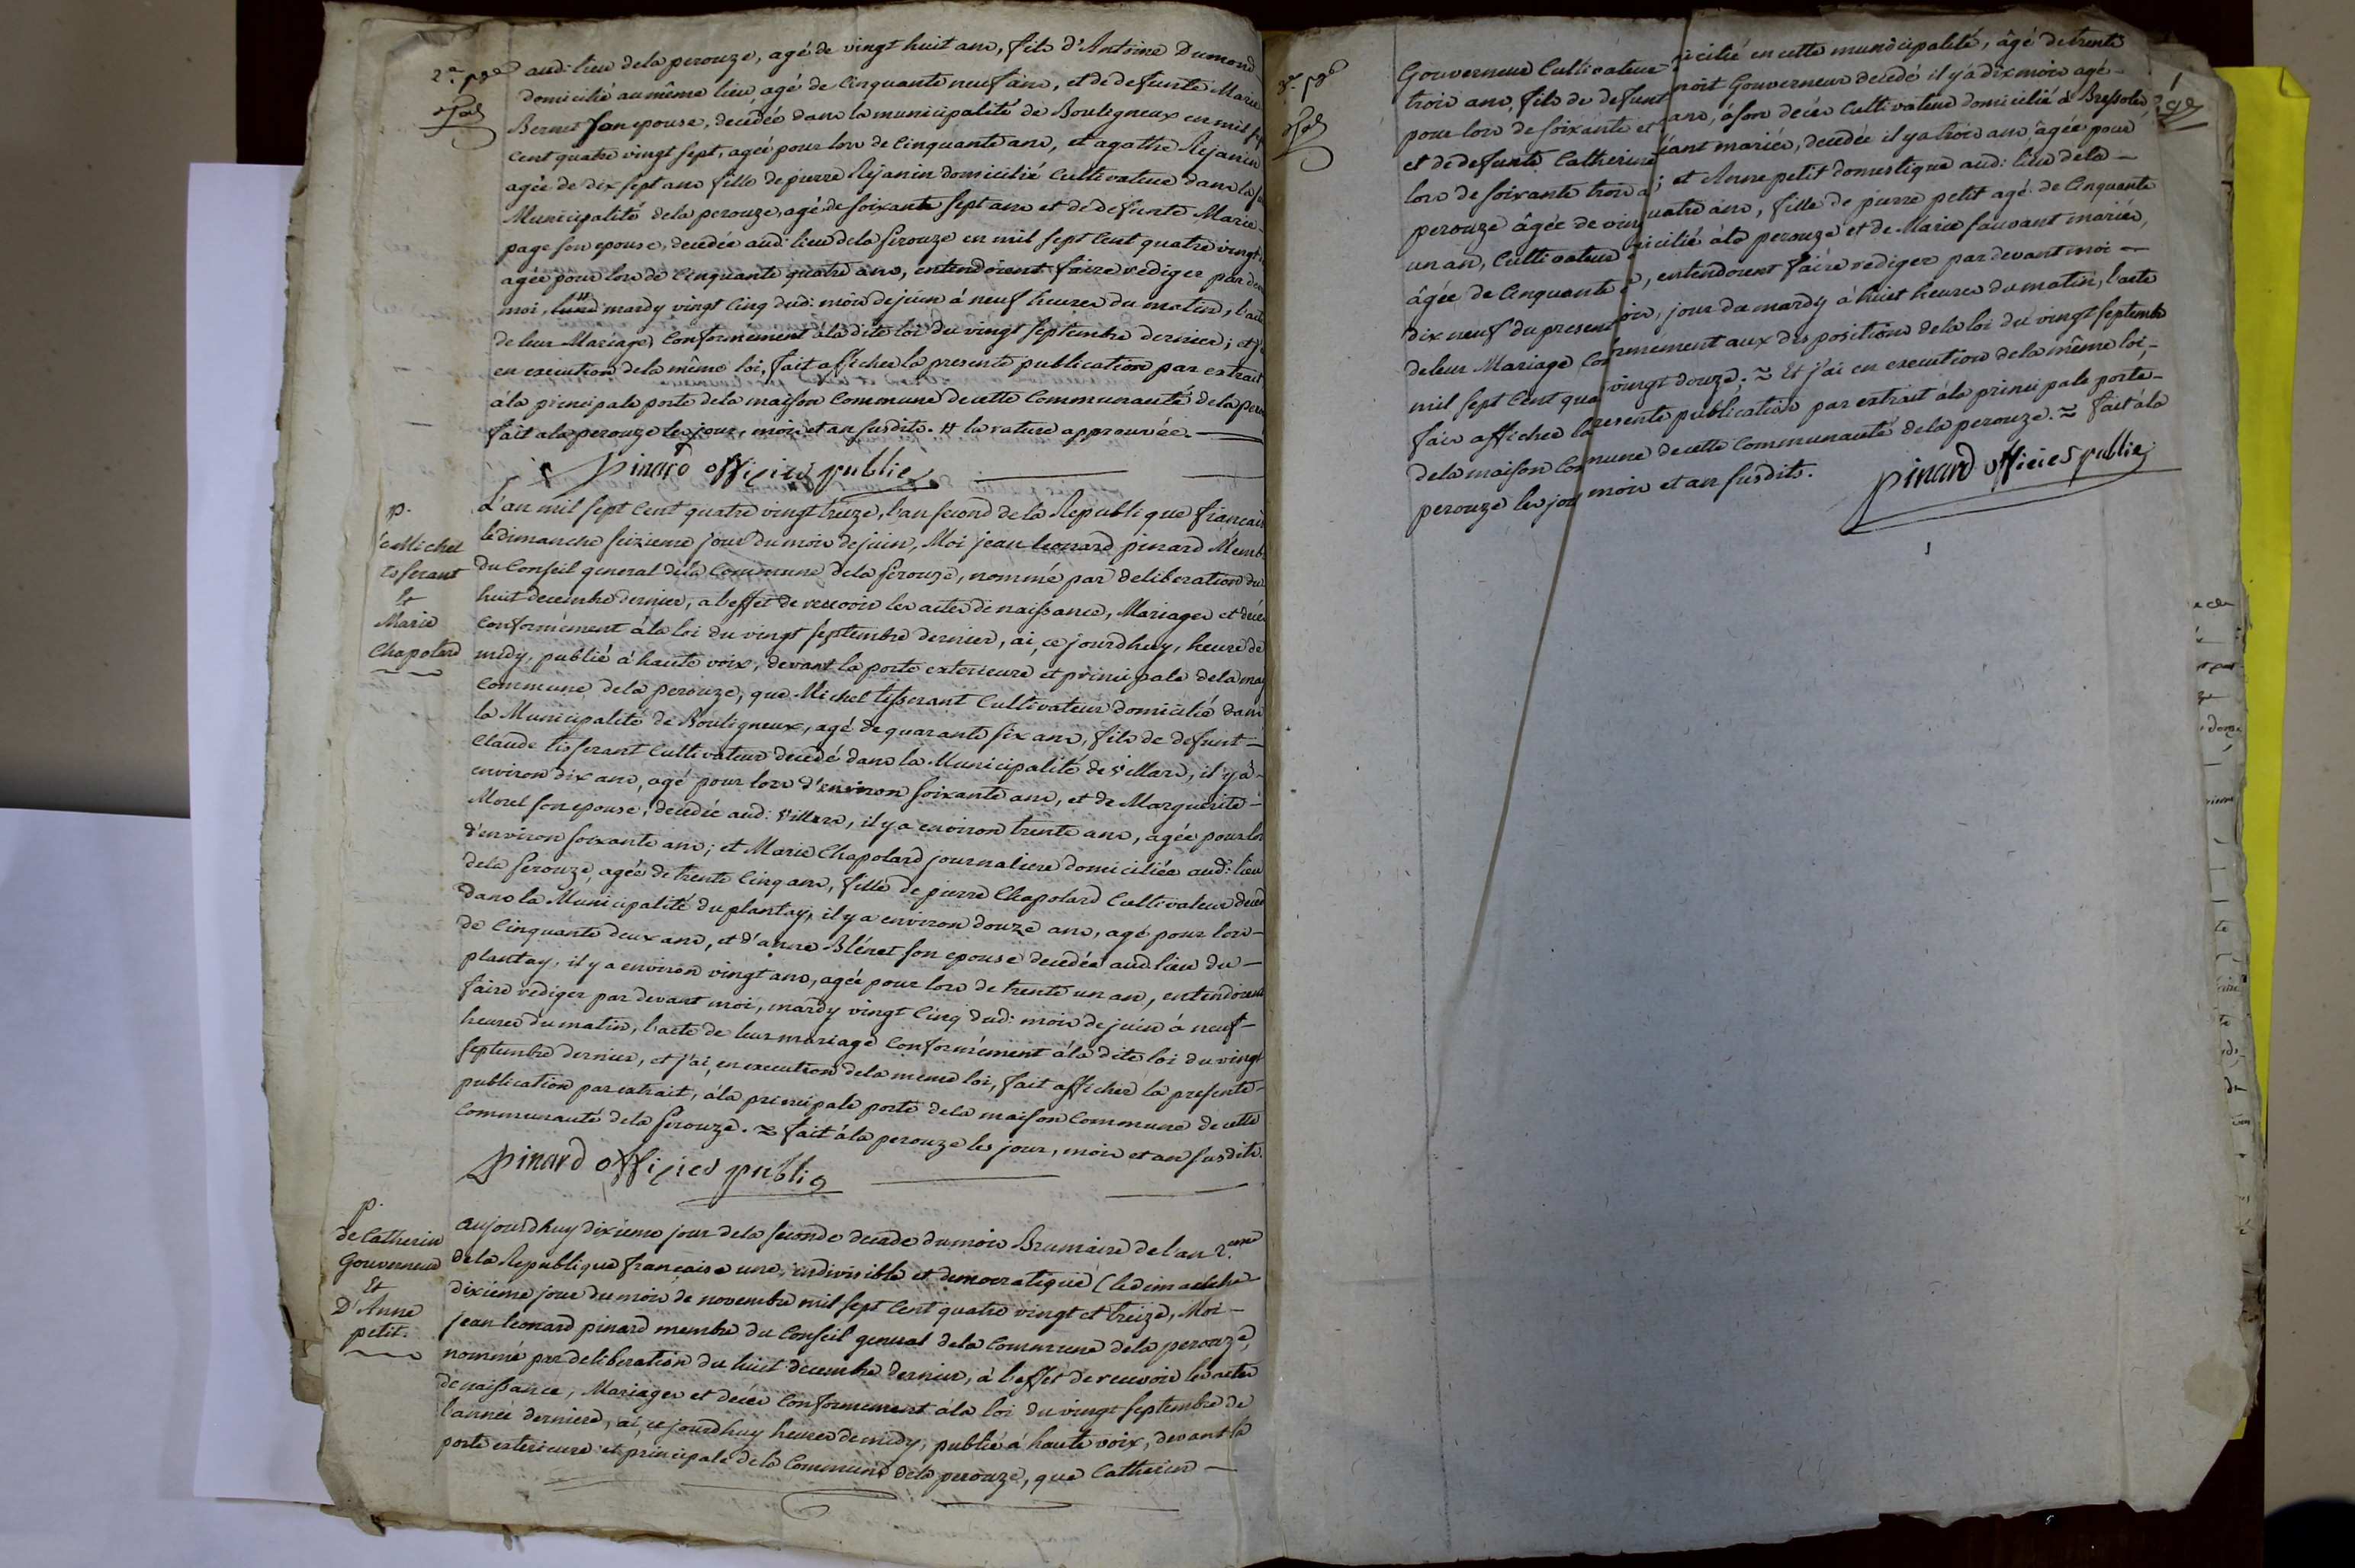 2e. pge
audi: lieu dela perouze, agé de vingt huit ans, fils d'Antoine Dumond
domicilié au même lieu, agé de Cinquante neuf ans, et de defunte Marie
Bernet son epouse, decedée dans la municipalité de Bouligneux en mil sept
Cent quatre vingt sept, agée pour lors de Cinquante ans, et agathe Rejanin
agée de dix sept ans fille de pierre Rejanin domicilié Cultivateur dans la
Municipalité dela perouze, agé de soixante sept ans et de defunte Marie
page son epouse, decedée aud: lieu dela perouze en mil sept Cent quatre vingt
agée pour lors de Cinquante quatre ans, entendoient faire rediger par de
moi, mardy vingt Cinq dud: mois de juin à neuf heures du matin, l'acte
de leur Mariage Conformement àla dite loi du vingt septembre dernier; et
en execution dela même loi, fait afficher la presente publication par extrait
àla principale porte dela maison Commune de cette Communauté dela
fait ala perouze les jour, mois et an susdits. la rature approuvée.
Pinard officier public
p.
Michel
tisserant
Et
Marie
Chapolard
L'an mil sept Cent quatre vingt treize, l'an second de la Republique francais
le dimanche seizieme jour du mois de juin, Moi jean leonard pinard Memb
du Conseil general dela Commune dela perouze, nommé par deliberation du
huit decembre dernier, a l'effet de recevoir les actes de naissance, Mariages et décès
Conformément àla loi du vingt septembre dernier, ai, ce jourdhuy, heure de
midy, publié à haute voix, devant la porte exterieure et principale dela mai
Commune dela perouze, que Michel tisserant Cultivateur domicilié dans
la Municipalité de Bouligneux, agé de quarante six ans, fils de defunt
Claude tisserant Cultivateur decedé dans la Municipalité de villars, il y à
environ dix ans, agé pour lors d'environ soixante ans, et de Marguerite
Morel son epouse, decedée aud: villars, il y a environ trente ans, agée pour lor
d'environ soixante ans; et Marie Chapolard journaliere domiciliée aud: lieu
dela perouze, agée de trente Cinq ans, fille de pierre Chapolard Cultivateur deced
dans la Municipalité du plantay, il y a environ douze ans, agé pour lors
de Cinquante deux ans, et d'anne Blénet son epouse decedée aud. lieu du
plantay, il y a environ vingt ans, agée pour lors de trente un an, entendoient
faire rediger par devant moi, mardy vingt Cinq dud: mois de juin à neuf
heures du matin, l'acte de leur mariage Conformément àla dite loi du vingt
septembre dernier, et j'ai, en execution dela meme loi, fait afficher la presente
publication par extrait, àla principale porte dela maison Commune de cette
Communauté dela perouze. fait àla perouze les jour, mois et an susdits.
pinard officier public
p.
de Catherin
Gouverneur
Et
D'Anne
petit.
aujourdhuy dixieme jour dela seconde decade du mois Brumaire de l'an 2.eme
dela Republique francaise une, indivisible et democratique (le dimanche
dixieme jour du mois de novembre mil sept Cent quatre vingt et treize, Moi
jean leonard pinard membre du Conseil general dela Commune dela perouze,
nommé par deliberation du huit decembre dernier, à l'effet de recevoir les actes
de naissance, Mariages et décès Conformement àla loi du vingt septembre de
l'année derniere, ai, ce jourdhuy heures de midy, publié à haute voix, devant la
porte exterieure et principale dela Commune dela perouze, que Catherin
3e. pge
Gouverneur Cultivateur icilié en cette municipalité, âgé de trente
trois ans, fils de defunt noit Gouverneur decedé il y a dix mois agé
pour lors de soixante et ans, à son décès Cultivateur domicilié à Bressoles
et de defunte Catherine éant mariés, decedée il y a trois ans âgée pour
lors de soixante trois a ; et Anne petit domestique aud: lieu dela
perouze âgée de vin uatre ans, fille de pierre petit agé de Cinquante
un an, Cultivateur icilié àla perouze et de Marie sauvant mariés,
âgée de Cinquante , entendoient faire rediger par devant moi
dix neuf du present ois, jour du mardy à huit heures du matin, l'acte
de leur Mariage Con rmément aux dispositions dela loi du vingt septembre
mil sept Cent qua vingt douze; Et j'ai en execution dela même loi,
fais afficher la resente publication par extrait àla principale porte
dela maison Com mune de cette Communauté dela perouze. fait àla
perouze les jou mois et an susdits.
pinard officier public